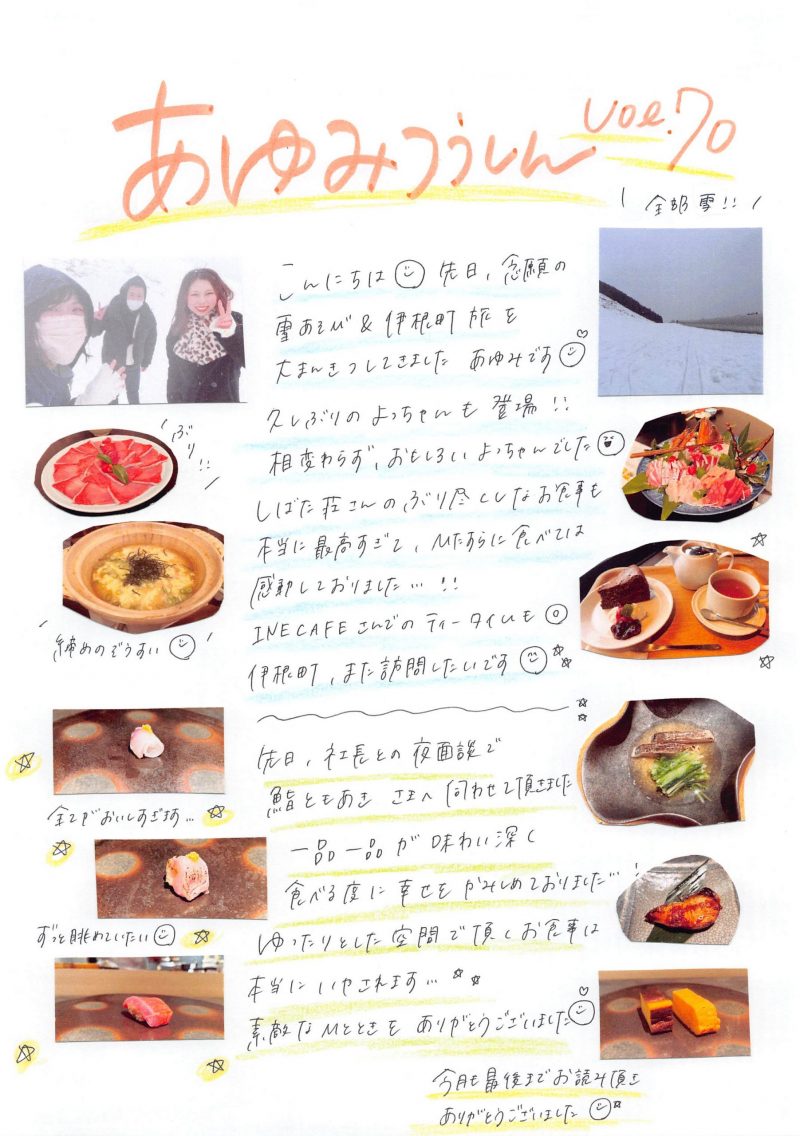 あゆみつうしん vol.70
全部雪!!
こんにちは 先日、念願の
雪あそび&伊根町旅を
大まんきつしてきました あゆみです
久しぶりのよっちゃんも登場!!
相変わらず、おもしろいよっちゃんでした
ぶり!!
しばた荘さんのぶり尽くしなお食事も
本当に最高すぎて、ひたすらに食べては
感動しておりました…!!
INECAFEさんでのティータイムも
締めのぞうすい
伊根町、また訪問したいです
先日、社長との夜面談で
鮨ともあき さまへ伺わせて頂きました
全てがおいしすぎます…
一品一品が味わい深く
食べる度に幸せをかみしめておりました…!
ずっと眺めていたい
ゆったりとした空間で頂くお食事は
本当にいやされます…
素敵なひとときを ありがとうございました
今月も最後までお読み頂き
ありがとうございました